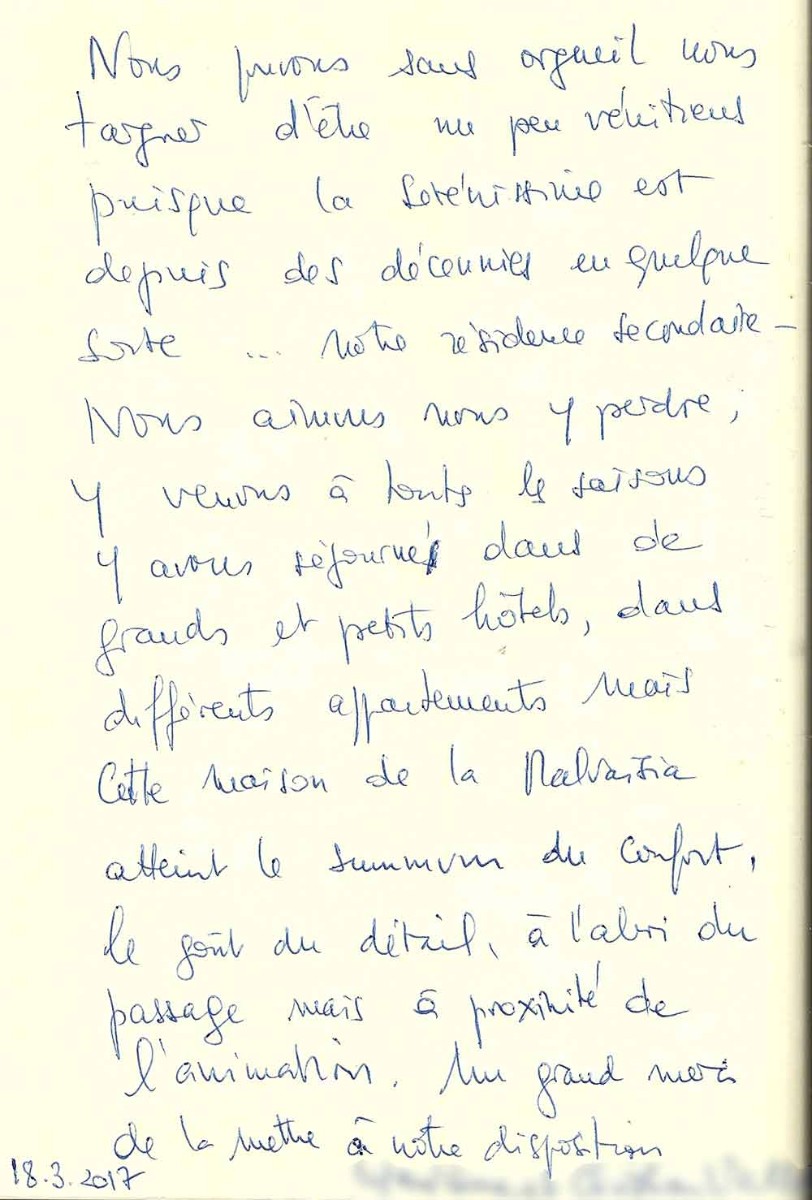 Nous puvons sans orgueil nous
targuer d'être un peu vénitiens
puisque la Sérénissime est
depuis des décennies en quelque
sorte ... notre résidence secondaire –
Nous aimons nous y perdre,
y venons à touts les saisons
y avons séjourné dans de
grands et petits hôtels, dans
différents appartements mais
Cette maison de la Malvaisia
atteint le summum du confort,
le goût du détail, à l'abri du
passage mais à proximité de
l'animation. Un grand merci
de la mettre à notre disposition
18.3.2017